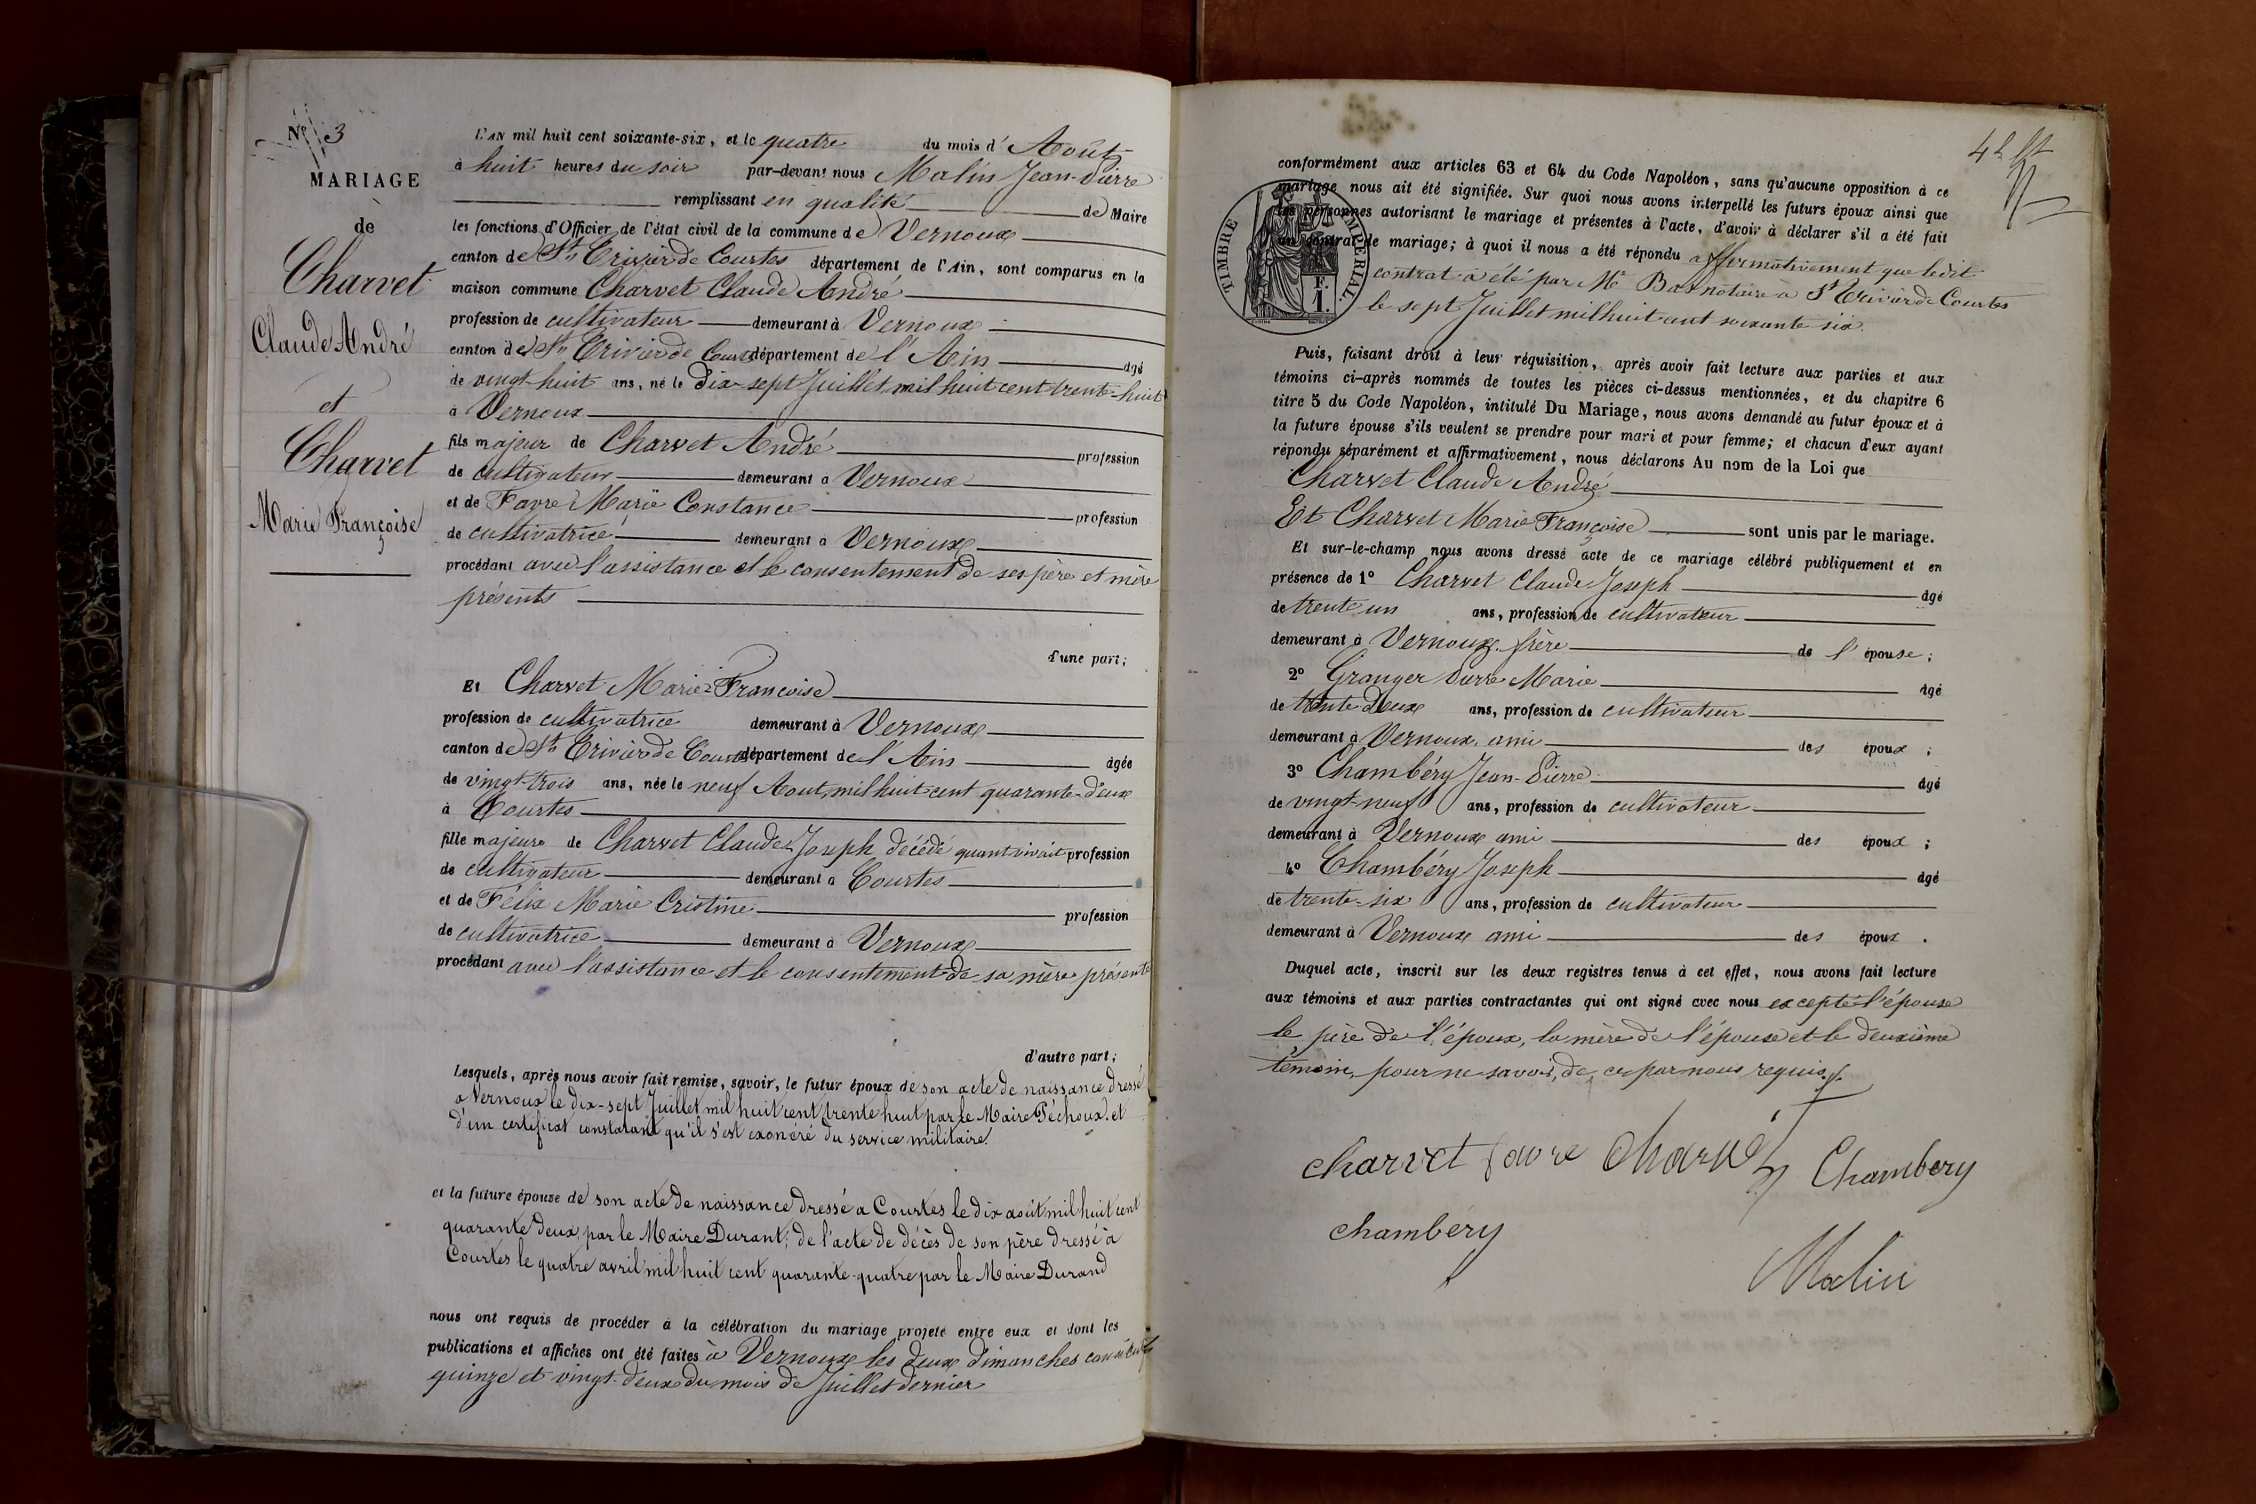 N° 3
MARIAGE
de
Charvet
Claude André
et
Charvet
Marie Françoise
L'AN mil huit cent soixante-six, et le quatre du mois d'Août
à huit heures du soir par-devant nous Malin Jean-Pierre
remplissant en qualité de Maire
les fonctions d'Officier de l'état civil de la commune de Vernoux
canton de St Trivier de Courtes département de l'Ain, sont comparus en la
maison commune Charvet Claude André
profession de cultivateur demeurant à Vernoux
canton de St Trivier de Courtes département de l'Ain âgé
de vingt-huit ans, né le dix-sept Juillet mil huit cent trente-huit
à Vernoux
fils majeur de Charvet André profession
de cultivateur demeurant à Vernoux
et de Favre Marie Constance profession
de cultivatrice demeurant à Vernoux
procédant avec l'assistance et le consentement de ses père et mère
présents
d'une part;
Et Charvet Marie Françoise
profession de cultivatrice demeurant à Vernoux
canton de St Trivier de Courtes département de l'Ain âgée
de vingt-trois ans, née le neuf Aout mil huit cent quarante-deux
à Courtes
fille majeure de Charvet Claude Joseph décédé quant vivait profession
de cultivateur demeurant à Courtes
et de Félix Marie Cristine profession
de cultivatrice demeurant à Vernoux
procédant avec l'assistance et le consentement de sa mère présente
d'autre part;
Lesquels, après nous avoir fait remise, savoir, le futur époux de son acte de naissance dressé
a Vernoux le dix-sept Juillet mil huit cent trente huit par le Maire Péchoux et
d'un certificat constatant qu'il s'est exonéré du service militaire.
et la future épouse de son acte de naissance dressé a Courtes le dix août mil huit cent
quarante deux par le Maire Durant; de l'acte de décès de son père dressé à
Courtes le quatre avril mil huit cent quarante-quatre par le Maire Durand
nous ont requis de procéder à la célébration du mariage projeté entre eux et dont les
publications et affiches ont été faites à Vernoux les deux dimanches consécutifs
quinze et vingt-deux du mois de Juillet dernier
conformément aux articles 63 et 64 du Code Napoléon, sans qu'aucune opposition à ce
mariage nous ait été signifiée. Sur quoi nous avons interpellé les futurs époux ainsi que
les personnes autorisant le mariage et présentes à l'acte, d'avoir à déclarer s'il a été fait
un contrat de mariage; à quoi il nous a été répondu affirmativement que ledit
contrat a été par Me Bas notaire à St Trivier de Courtes
le sept Juillet mil huit cent soixante six.
TIMBRE IMPERIAL.
1 F.
Puis, faisant droit à leur réquisition, après avoir fait lecture aux parties et aux
témoins ci-après nommés de toutes les pièces ci-dessus mentionnées, et du chapitre 6
titre 5 du Code Napoléon, intitulé Du Mariage, nous avons demandé au futur époux et à
la future épouse s'ils veulent se prendre pour mari et pour femme; et chacun d'eux ayant
répondu séparément et affirmativement, nous déclarons Au nom de la Loi que
Charvet Claude André
Et Charvet Marie Françoise sont unis par le mariage.
Et sur-le-champ nous avons dressé acte de ce mariage célébré publiquement et en
présence de 1° Charvet Claude Joseph âgé
de trente un ans, profession de cultivateur
demeurant à Vernoux frère de l'épouse;
2° Granger Pierre Marie âgé
de trente deux ans, profession de cultivateur
demeurant à Vernoux, ami des époux;
3° Chambéry Jean-Pierre âgé
de vingt-neuf ans, profession de cultivateur
demeurant à Vernoux ami des époux;
4° Chambéry Joseph âgé
de trente-six ans, profession de cultivateur
demeurant à Vernoux ami des époux.
Duquel acte, inscrit sur les deux registres tenus à cet effet, nous avons fait lecture
aux témoins et aux parties contractantes qui ont signé avec nous excepté l'épouse
le père de l'époux, la mère de l'épouse et le deuxième
témoin, pour ne savoir, de ce par nous requis.
charvet favre Charvet Chambery
chambéry
Malin